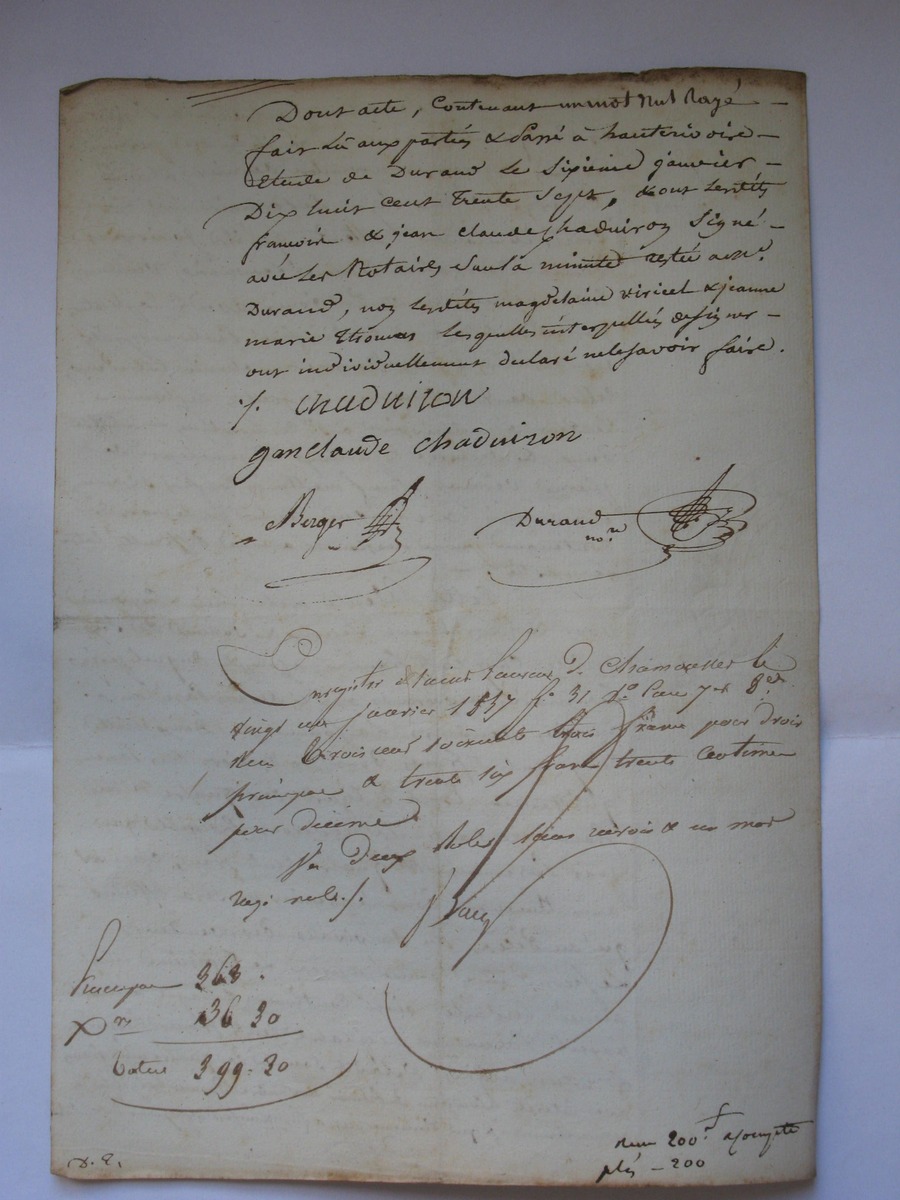 Dont acte, Contenant un mot Nul Rayé
fait Lu aux parties & Passé à hauterivoire
Etude de Durand Le Sixieme janvier
Dix huit Cent Trente Sept, & ont Lesdits
francois & jean Claude Chaduiron Signé
avec Les Notaires Sur La minute restée à Mᵉ
Durand, non Lesdites magdelaine & jeanne
marie Thomas Lesquelles interpellées de Signer
ont individuellement declaré ne le Savoir faire.
/. Chaduiron
Janclaude Chaduiron
Berger Durand
noʳᵉ
Enregistré à Saint Laurent D. Chamousset le
vingt un janvier 1837 fº 31 Vº Case 7 et 8
Reçu trois cent soixante trois francs pour droit
principal & trente six francs trente Centimes
pour décime
Deux Roles sans renvois & un mot
rayé nul./.
Principal 363.
Xᵐᵉ 36 30
Total 399.30
Reçu 200ᶠ acompte
plus – 200